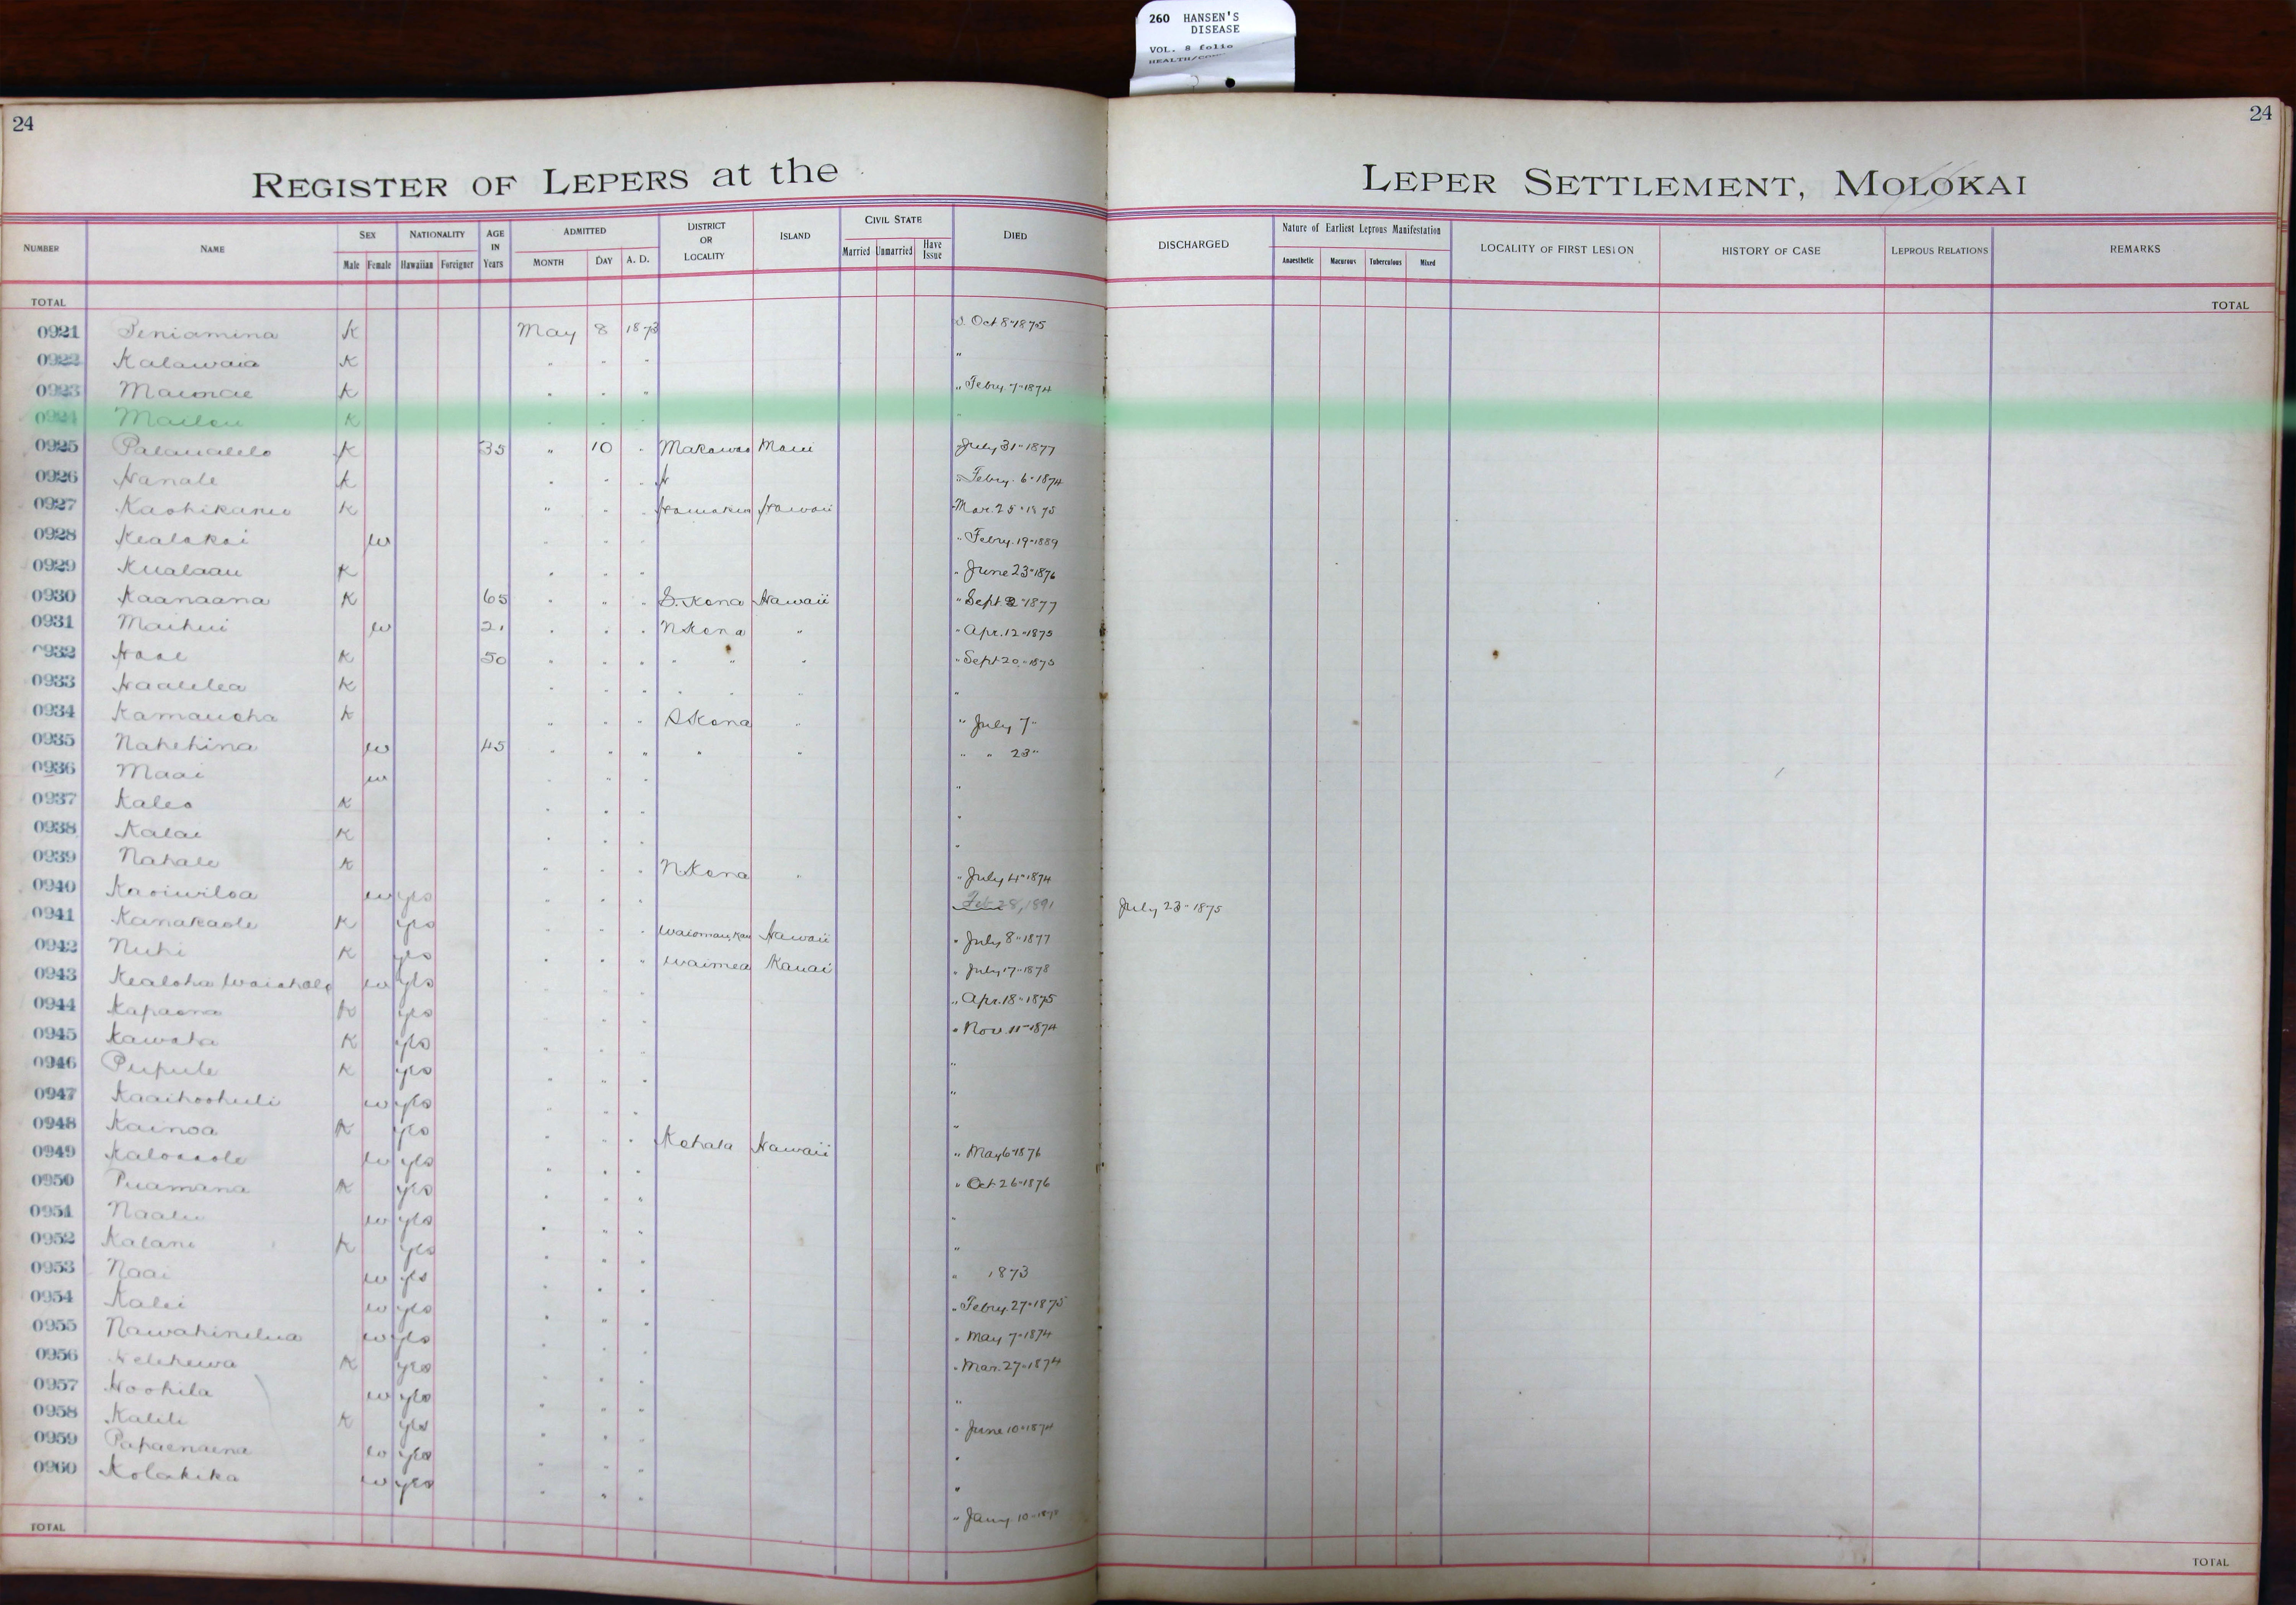 260 HANSEN'S
DISEASE
VOL. 8 folio
24
24
REGISTER OF LEPERS at the LEPER SETTLEMENT, MOLOKAI
NUMBER NAME SEX Male Female NATIONALITY Hawaiian Foreigner AGE IN Years ADMITTED MONTH DAY A. D. DISTRICT OR LOCALITY ISLAND CIVIL STATE Married Unmarried Have Issue DIED DISCHARGED Nature of Earliest Leprous Manifestation Anaesthetic Macurous Tuberculous Mixed LOCALITY OF FIRST LESION HISTORY OF CASE LEPROUS RELATIONS REMARKS
TOTAL TOTAL
0921 Peniamina K May 8 1873 Oct 8" 1875
0922 Kalawaia K " " " "
0923 K " " " " Febry. 7" 1874
0924 K " " " "
0925 K 35 " 10 " Makawao Maui July 31" 1877
0926 Hanale K " " " " Febry. 6" 1874
0927 K " " " Hamakua Hawaii Mar. 25" 1875
0928 Kealakai w " " " " Febry. 19" 1889
0929 Kualaau K " " " " June 23" 1876
0930 Kaanaana K 65 " " " S. Kona Hawaii " Sept 1877
0931 Maihui w 21 " " " N Kona " " Apr. 12" 1875
0932 K 50 " " " " " " " Sept 20" 1875
0933 Haalelea K " " " " " " "
0934 Kamauoha K " " " S Kona " " July 7"
0935 Nahehina w 45 " " " " " " " 23"
0936 Maai w " " " "
0937 Kaleo K " " " "
0938 Kalai K " " " "
0939 Nahale K " " " N Kona " " July 4" 1874
0940 Kaoiwiloa w yes " " " Feb 28, 1891 July 23" 1875
0941 Kanakaole K yes " " " Hawaii " July 8" 1877
0942 Nuhi K yes " " " Waimea Kauai " July 17" 1878
0943 Kealoha w yes " " " " Apr. 18" 1875
0944 Kapaona K yes " " " " Nov. 11" 1874
0945 Kawaha K yes " " " "
0946 Pupule K yes " " " "
0947 Kaaihoohuli w yes " " " "
0948 Kainoa K yes " " " Kohala Hawaii " May 6" 1876
0949 w yes " " " " Oct 26" 1876
0950 Puamana K yes " " " "
0951 w yes " " " "
0952 Kalani K yes " " " " 1873
0953 Naai w yes " " " " Febry. 27" 1875
0954 Kalei w yes " " " " May 7" 1874
0955 Nawahinelua w yes " " " " Mar. 27" 1874
0956 K yes " " " "
0957 Hoohila w yes " " " " June 10" 1874
0958 Kalili K yes " " " "
0959 Papaenaena w yes " " " "
0960 Kolakika w yes " " " " Jany. 10"
TOTAL TOTAL